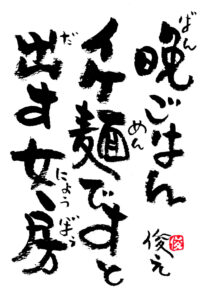 晩ごはん
イケ麺ですと
出す女房
ばん
めん
だ
にょうぼう
俊元